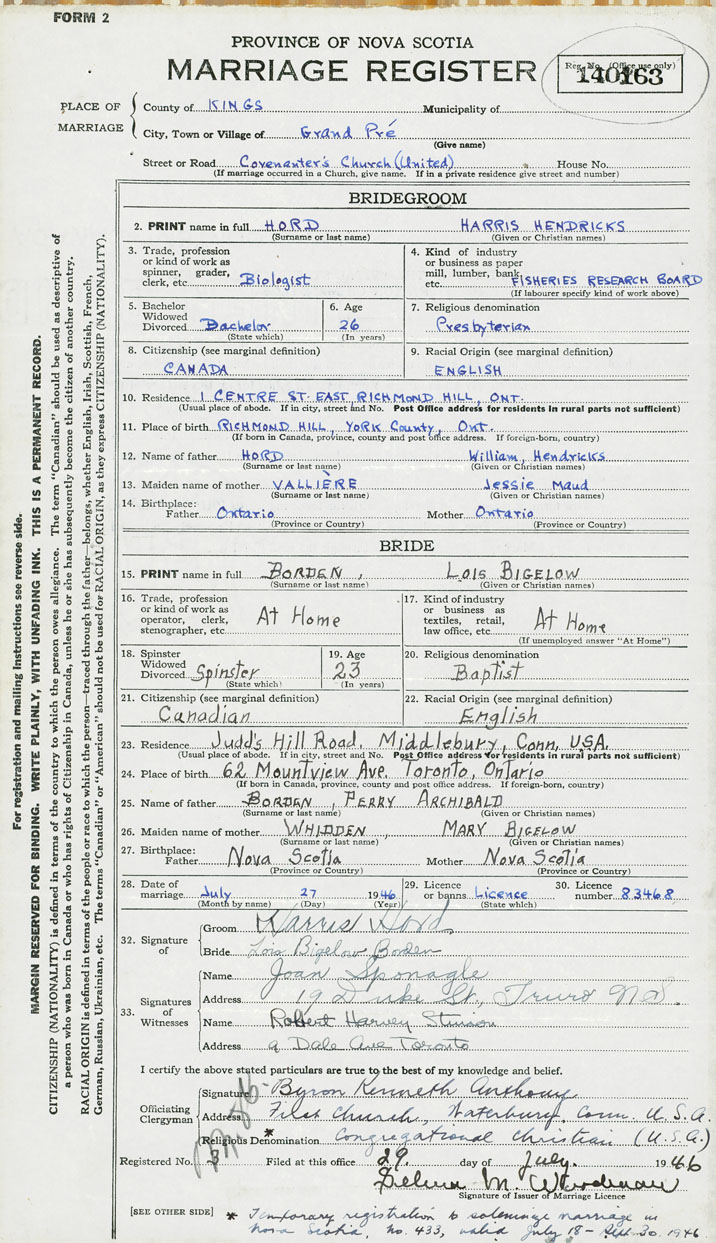 FORM 2
PROVINCE OF NOVA SCOTIA
MARRIAGE REGISTER
Reg. No. (Office use only)
140163
PLACE OF MARRIAGE
County of KINGS Municipality of
City, Town or Village of Grand Pré
(Give name)
Street or Road Covenanter's Church (United) House No.
(If marriage occurred in a Church, give name. If in a private residence give street and number)
BRIDEGROOM
2. PRINT name in full HORD HARRIS HENDRICKS
(Surname or last name) (Given or Christian names)
3. Trade, profession or kind of work as spinner, grader, clerk, etc. Biologist
4. Kind of industry or business as paper mill, lumber, bank, etc. FISHERIES RESEARCH BOARD
(If labourer specify kind of work above)
5. Bachelor Widowed Divorced Bachelor
(State which)
6. Age 26
(In years)
7. Religious denomination
Presbyterian
8. Citizenship (see marginal definition)
CANADA
9. Racial Origin (see marginal definition)
ENGLISH
10. Residence 1 CENTRE ST. EAST RICHMOND HILL, ONT.
(Usual place of abode. If in city, street and No. Post Office address for residents in rural parts not sufficient)
11. Place of birth RICHMOND HILL, YORK County, Ont.
(If born in Canada, province, county and post office address. If foreign-born, country)
12. Name of father HORD William, Hendricks
(Surname or last name) (Given or Christian names)
13. Maiden name of mother VALLIÈRE Jessie Maud
(Surname or last name) (Given or Christian names)
14. Birthplace: Father Ontario Mother Ontario
(Province or Country) (Province or Country)
BRIDE
15. PRINT name in full BORDEN, LOIS BIGELOW
(Surname or last name) (Given or Christian names)
16. Trade, profession or kind of work as operator, clerk, stenographer, etc. At Home
17. Kind of industry or business as textiles, retail, law office, etc. At Home
(If unemployed answer "At Home")
18. Spinster Widowed Divorced Spinster
(State which)
19. Age 23
(In years)
20. Religious denomination
Baptist
21. Citizenship (see marginal definition)
Canadian
22. Racial Origin (see marginal definition)
English
23. Residence Judd's Hill Road, Middlebury, Conn, U.S.A.
(Usual place of abode. If in city, street and No. Post Office address for residents in rural parts not sufficient)
24. Place of birth 62 Mountview Ave. Toronto, Ontario
(If born in Canada, province, county and post office address. If foreign-born, country)
25. Name of father BORDEN, PERRY ARCHIBALD
(Surname or last name) (Given or Christian names)
26. Maiden name of mother WHIDDEN, MARY BIGELOW
(Surname or last name) (Given or Christian names)
27. Birthplace: Father Nova Scotia Mother Nova Scotia
(Province or Country) (Province or Country)
28. Date of marriage July 27 1946
(Month by name) (Day) (Year)
29. Licence or banns Licence
(State which)
30. Licence number 83468
32. Signature of
Groom Harris Hord
Bride Lois Bigelow Borden
33. Signatures of Witnesses
Name Joan Sponagle
Address 19 Duke St, Truro N.S.
Name Robert Harvey Stinson
Address 9 Dale Ave Toronto
I certify the above stated particulars are true to the best of my knowledge and belief.
Officiating Clergyman
Signature Byron Kenneth Anthony
Address First Church, Waterbury, Conn. U.S.A.
Religious Denomination * Congregational Christian (U.S.A.)
Registered No. 3 Filed at this office 29 day of July. 1946
Signature of Issuer of Marriage Licence
[SEE OTHER SIDE] * Temporary registration to solemnize marriage in
Nova Scotia, No. 433, valid July 18 - Sept. 30. 1946
For registration and mailing instructions see reverse side.
MARGIN RESERVED FOR BINDING. WRITE PLAINLY, WITH UNFADING INK. THIS IS A PERMANENT RECORD.
CITIZENSHIP (NATIONALITY) is defined in terms of the country to which the person owes allegiance. The term "Canadian" should be used as descriptive of
a person who was born in Canada or who has rights of Citizenship in Canada, unless he or she has subsequently become the citizen of another country.
RACIAL ORIGIN is defined in terms of the people or race to which the person—traced through the father—belongs, whether English, Irish, Scottish, French,
German, Russian, Ukrainian, etc. The terms "Canadian" or "American" should not be used for RACIAL ORIGIN, as they express CITIZENSHIP (NATIONALITY).